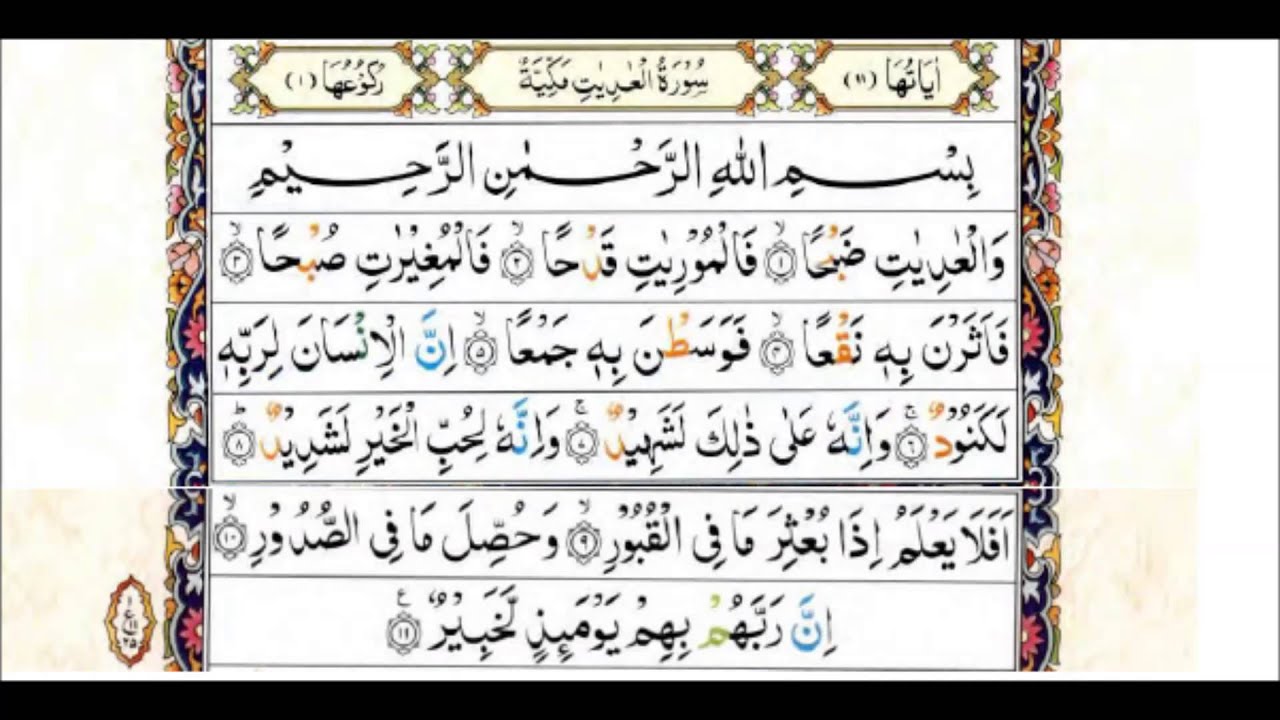 اٰیَاتُهَا (۱۱) سُوْرَةُ الْعٰدِیٰتِ مَكِّیَّةٌ رُكُوْعُهَا (۱)
بِسْمِ اللّٰهِ الرَّحْمٰنِ الرَّحِیْمِ
وَالْعٰدِیٰتِ ضَبْحًا ۙ﴿۱﴾ فَالْمُوْرِیٰتِ قَدْحًا ۙ﴿۲﴾ فَالْمُغِیْرٰتِ صُبْحًا ۙ﴿۳﴾
فَاَثَرْنَ بِهٖ نَقْعًا ۙ﴿۴﴾ فَوَسَطْنَ بِهٖ جَمْعًا ۙ﴿۵﴾ اِنَّ الْاِنْسَانَ لِرَبِّهٖ
لَكَنُوْدٌ ۚ﴿۶﴾ وَاِنَّهٗ عَلٰی ذٰلِكَ لَشَهِیْدٌ ۚ﴿۷﴾ وَاِنَّهٗ لِحُبِّ الْخَیْرِ لَشَدِیْدٌ ؕ﴿۸﴾
اَفَلَا یَعْلَمُ اِذَا بُعْثِرَ مَا فِی الْقُبُوْرِ ۙ﴿۹﴾ وَحُصِّلَ مَا فِی الصُّدُوْرِ ۙ﴿۱۰﴾
اِنَّ رَبَّهُمْ بِهِمْ یَوْمَىِٕذٍ لَّخَبِیْرٌ ﴿۱۱﴾ع